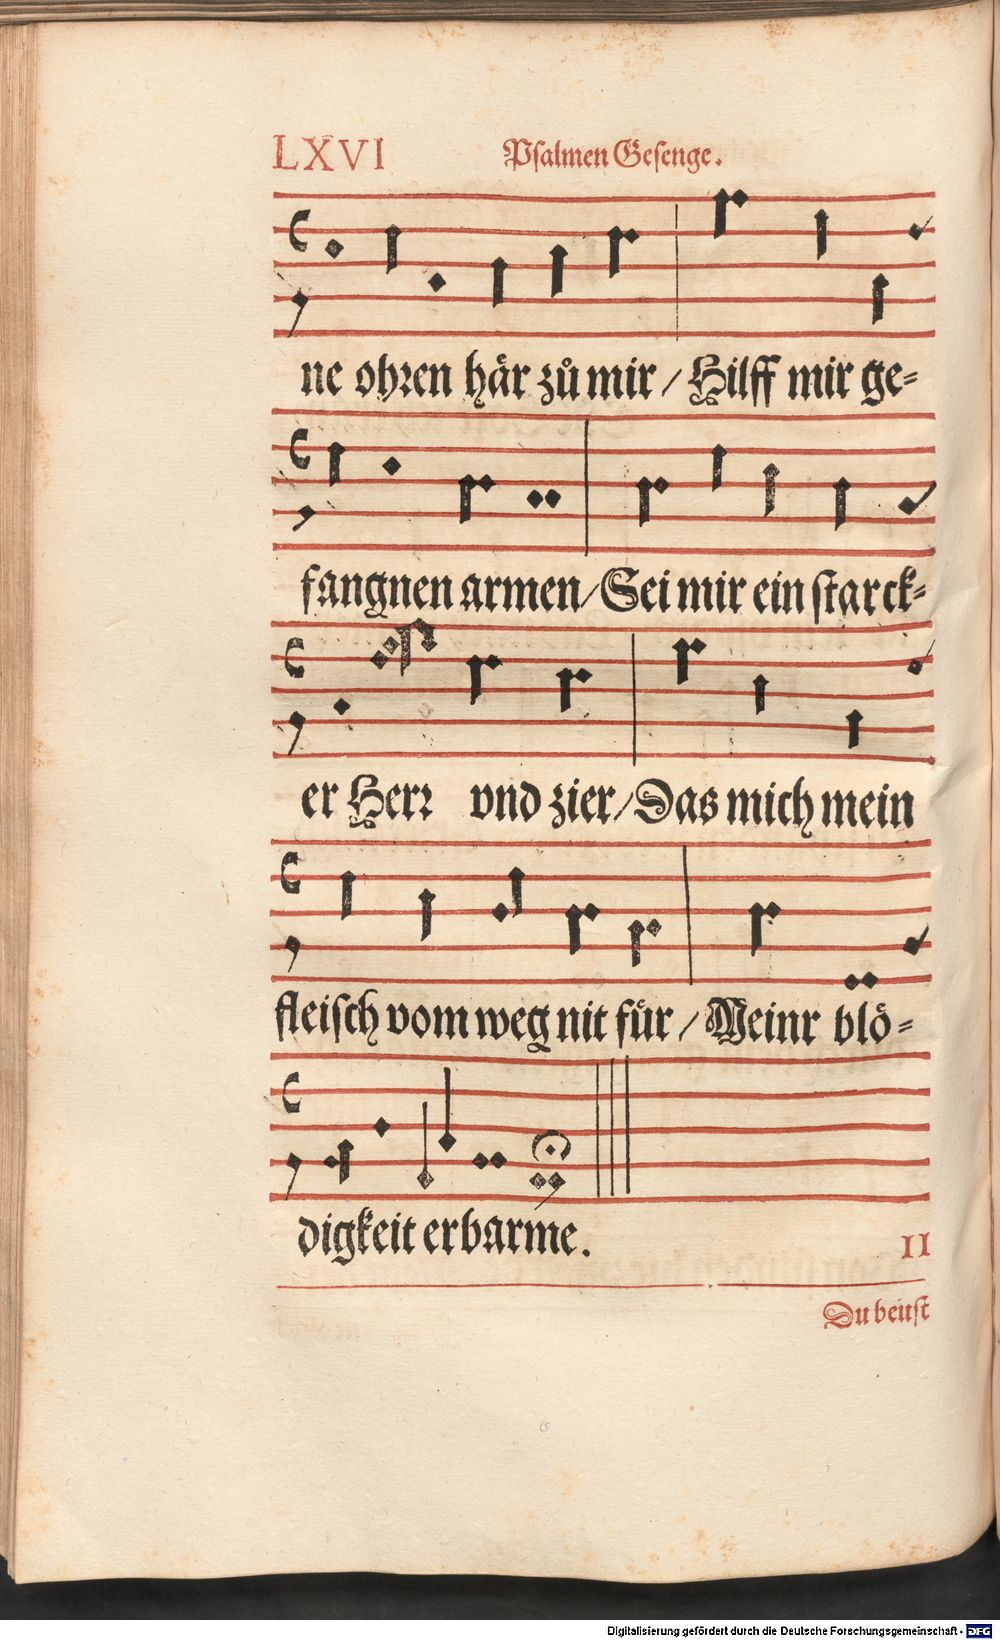 LXVI Psalmen Gesenge.
ne ohren här zů mir / Hilff mir ge-
fangnen armen / Sei mir ein starck-
er Herr vnd zier / Das mich mein
fleisch vom weg nit für / Meinr blö-
digkeit erbarme.
II
Du beüst
Digitalisierung gefördert durch die Deutsche Forschungsgemeinschaft - DFG